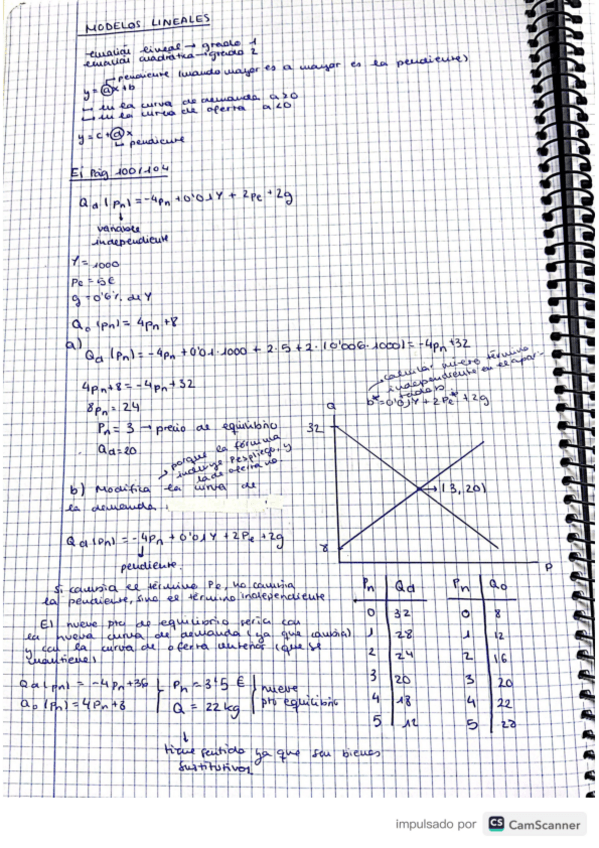 MODELOS LINEALES
ecuación lineal → grado 1
ecuación cuadrática → grado 2
pendiente (cuando mayor es a mayor es la pendiente)
y = ax+b
en la curva de demanda a>0
en la curva de oferta a<0
y = c+ax
pendiente
Ej Pág 100/104
Qd (Pn) = -4Pn + 0'01Y + 2Pe + 2g
variable
independiente
Y = 1000
Pe = 5€
g = 0'6% de Y
Qo (Pn) = 4Pn +8
a)
Qd (Pn) = -4Pn + 0'01·1000 + 2·5 + 2·(0'006·1000) = -4Pn +32
4Pn+8 = -4Pn +32
8Pn = 24
Pn = 3 → precio de equilibrio
Qd=20
calcular nuevo término
independiente en el apar-
tado b
b*=0'01Y + 2Pe* + 2g
porque la fórmula
incluye Pespliego, y
la de oferta no
b) Modifica la curva de
la demanda
Qd (Pn) = -4Pn + 0'01Y + 2Pe + 2g
pendiente
Si cambia el término Pe, no cambia
la pendiente, sino el término independiente
El nuevo pto de equilibrio sería con
la nueva curva de demanda (ya que cambia)
y con la curva de oferta antenos (que se
mantiene)
Qd (Pn) = -4Pn +36
Qo (Pn) = 4Pn +8
Pn = 3'5 €
Q = 22 kg
nuevo
pto equilibrio
tiene sentido ya que son bienes
sustitutivos
Q
32
8
(3, 20)
P
Pn Qd
0 32
1 28
2 24
3 20
4 18
5 12
Pn Qo
0 8
1 12
2 16
3 20
4 22
5 28
impulsado por CS CamScanner